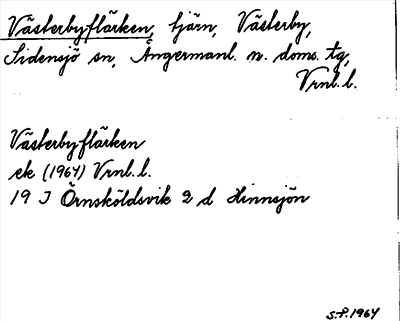 Västerbyflärken, tjärn, Västerby,
Sidensjö sn, Ångermanl. n. doms. tg,
Vrnl. l.
Västerbyflärken
ek (1964) Vrnl. l.
19 J Örnsköldsvik 2 d Hinnsjön
S.P. 1964